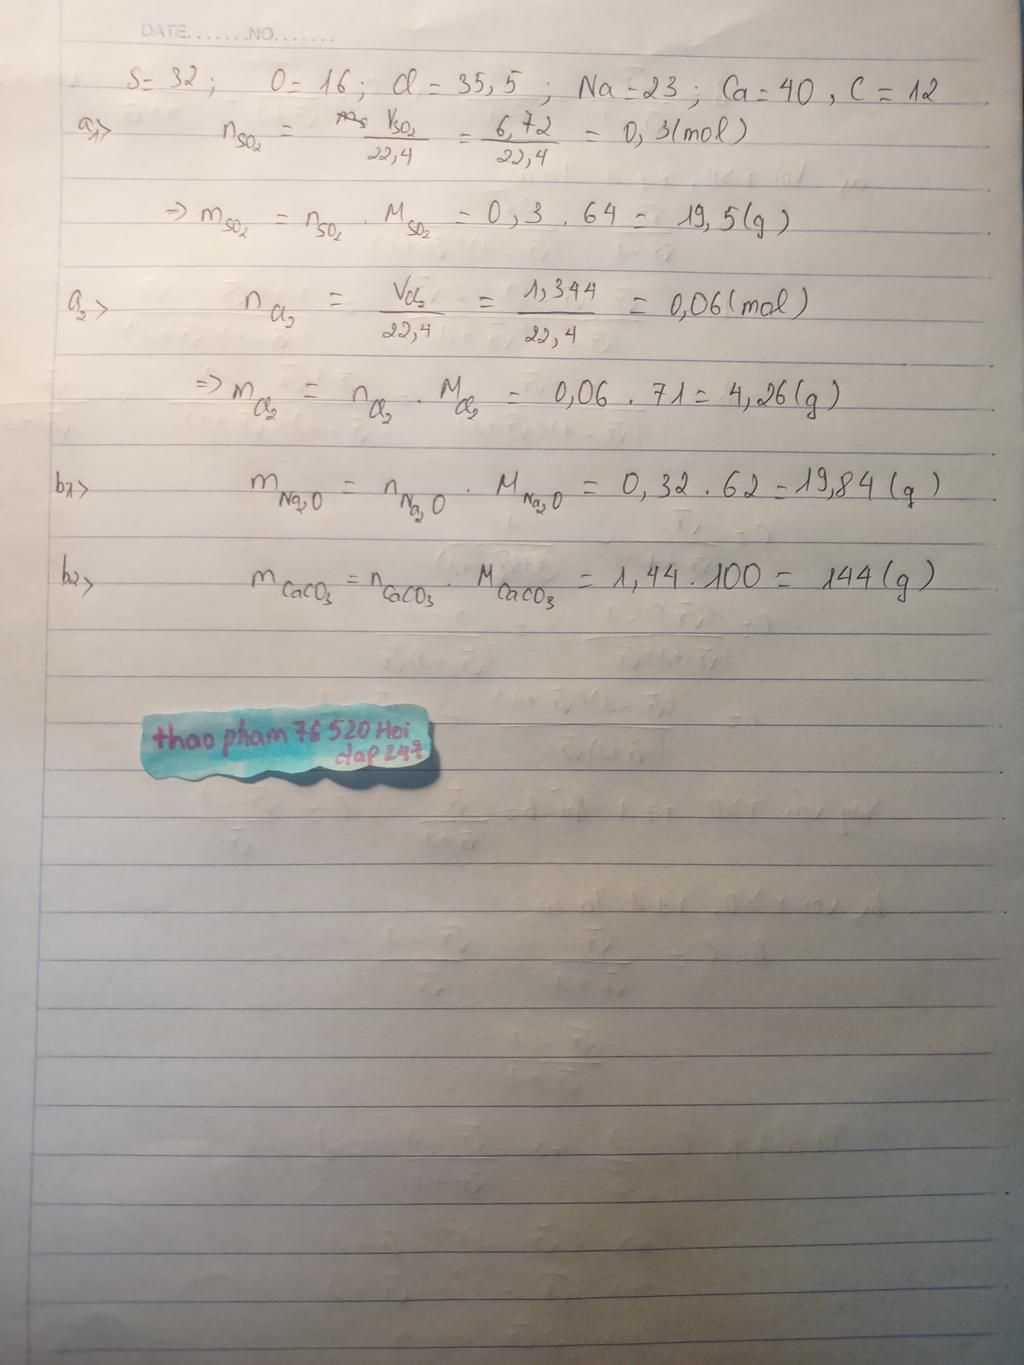 DATE.......NO.......
S= 32; O= 16; Cl = 35,5; Na=23; Ca=40, C=12
a1> nSO2 = VSO2/22,4 = 6,72/22,4 = 0,3(mol)
=> mSO2 = nSO2 . MSO2 = 0,3 . 64 = 19,5(g)
a2> nCl2 = VCl2/22,4 = 1,344/22,4 = 0,06(mol)
=> mCl2 = nCl2 . MCl2 = 0,06 . 71 = 4,26(g)
b1> mNa2O = nNa2O . MNa2O = 0,32 . 62 = 19,84(g)
b2> mCaCO3 = nCaCO3 . MCaCO3 = 1,44 . 100 = 144(g)
thao pham 76 520 Hoi
dap 24